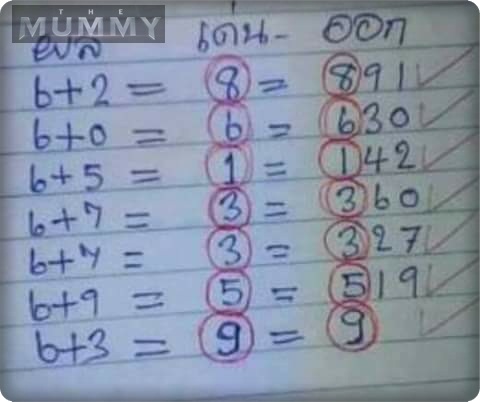 THE
MUMMY
ผล เด่น- ออก
6+2 = 8 = 891
6+0 = 6 = 630
6+5 = 1 = 142
6+7 = 3 = 360
6+7 = 3 = 327
6+9 = 5 = 519
6+3 = 9 = 9